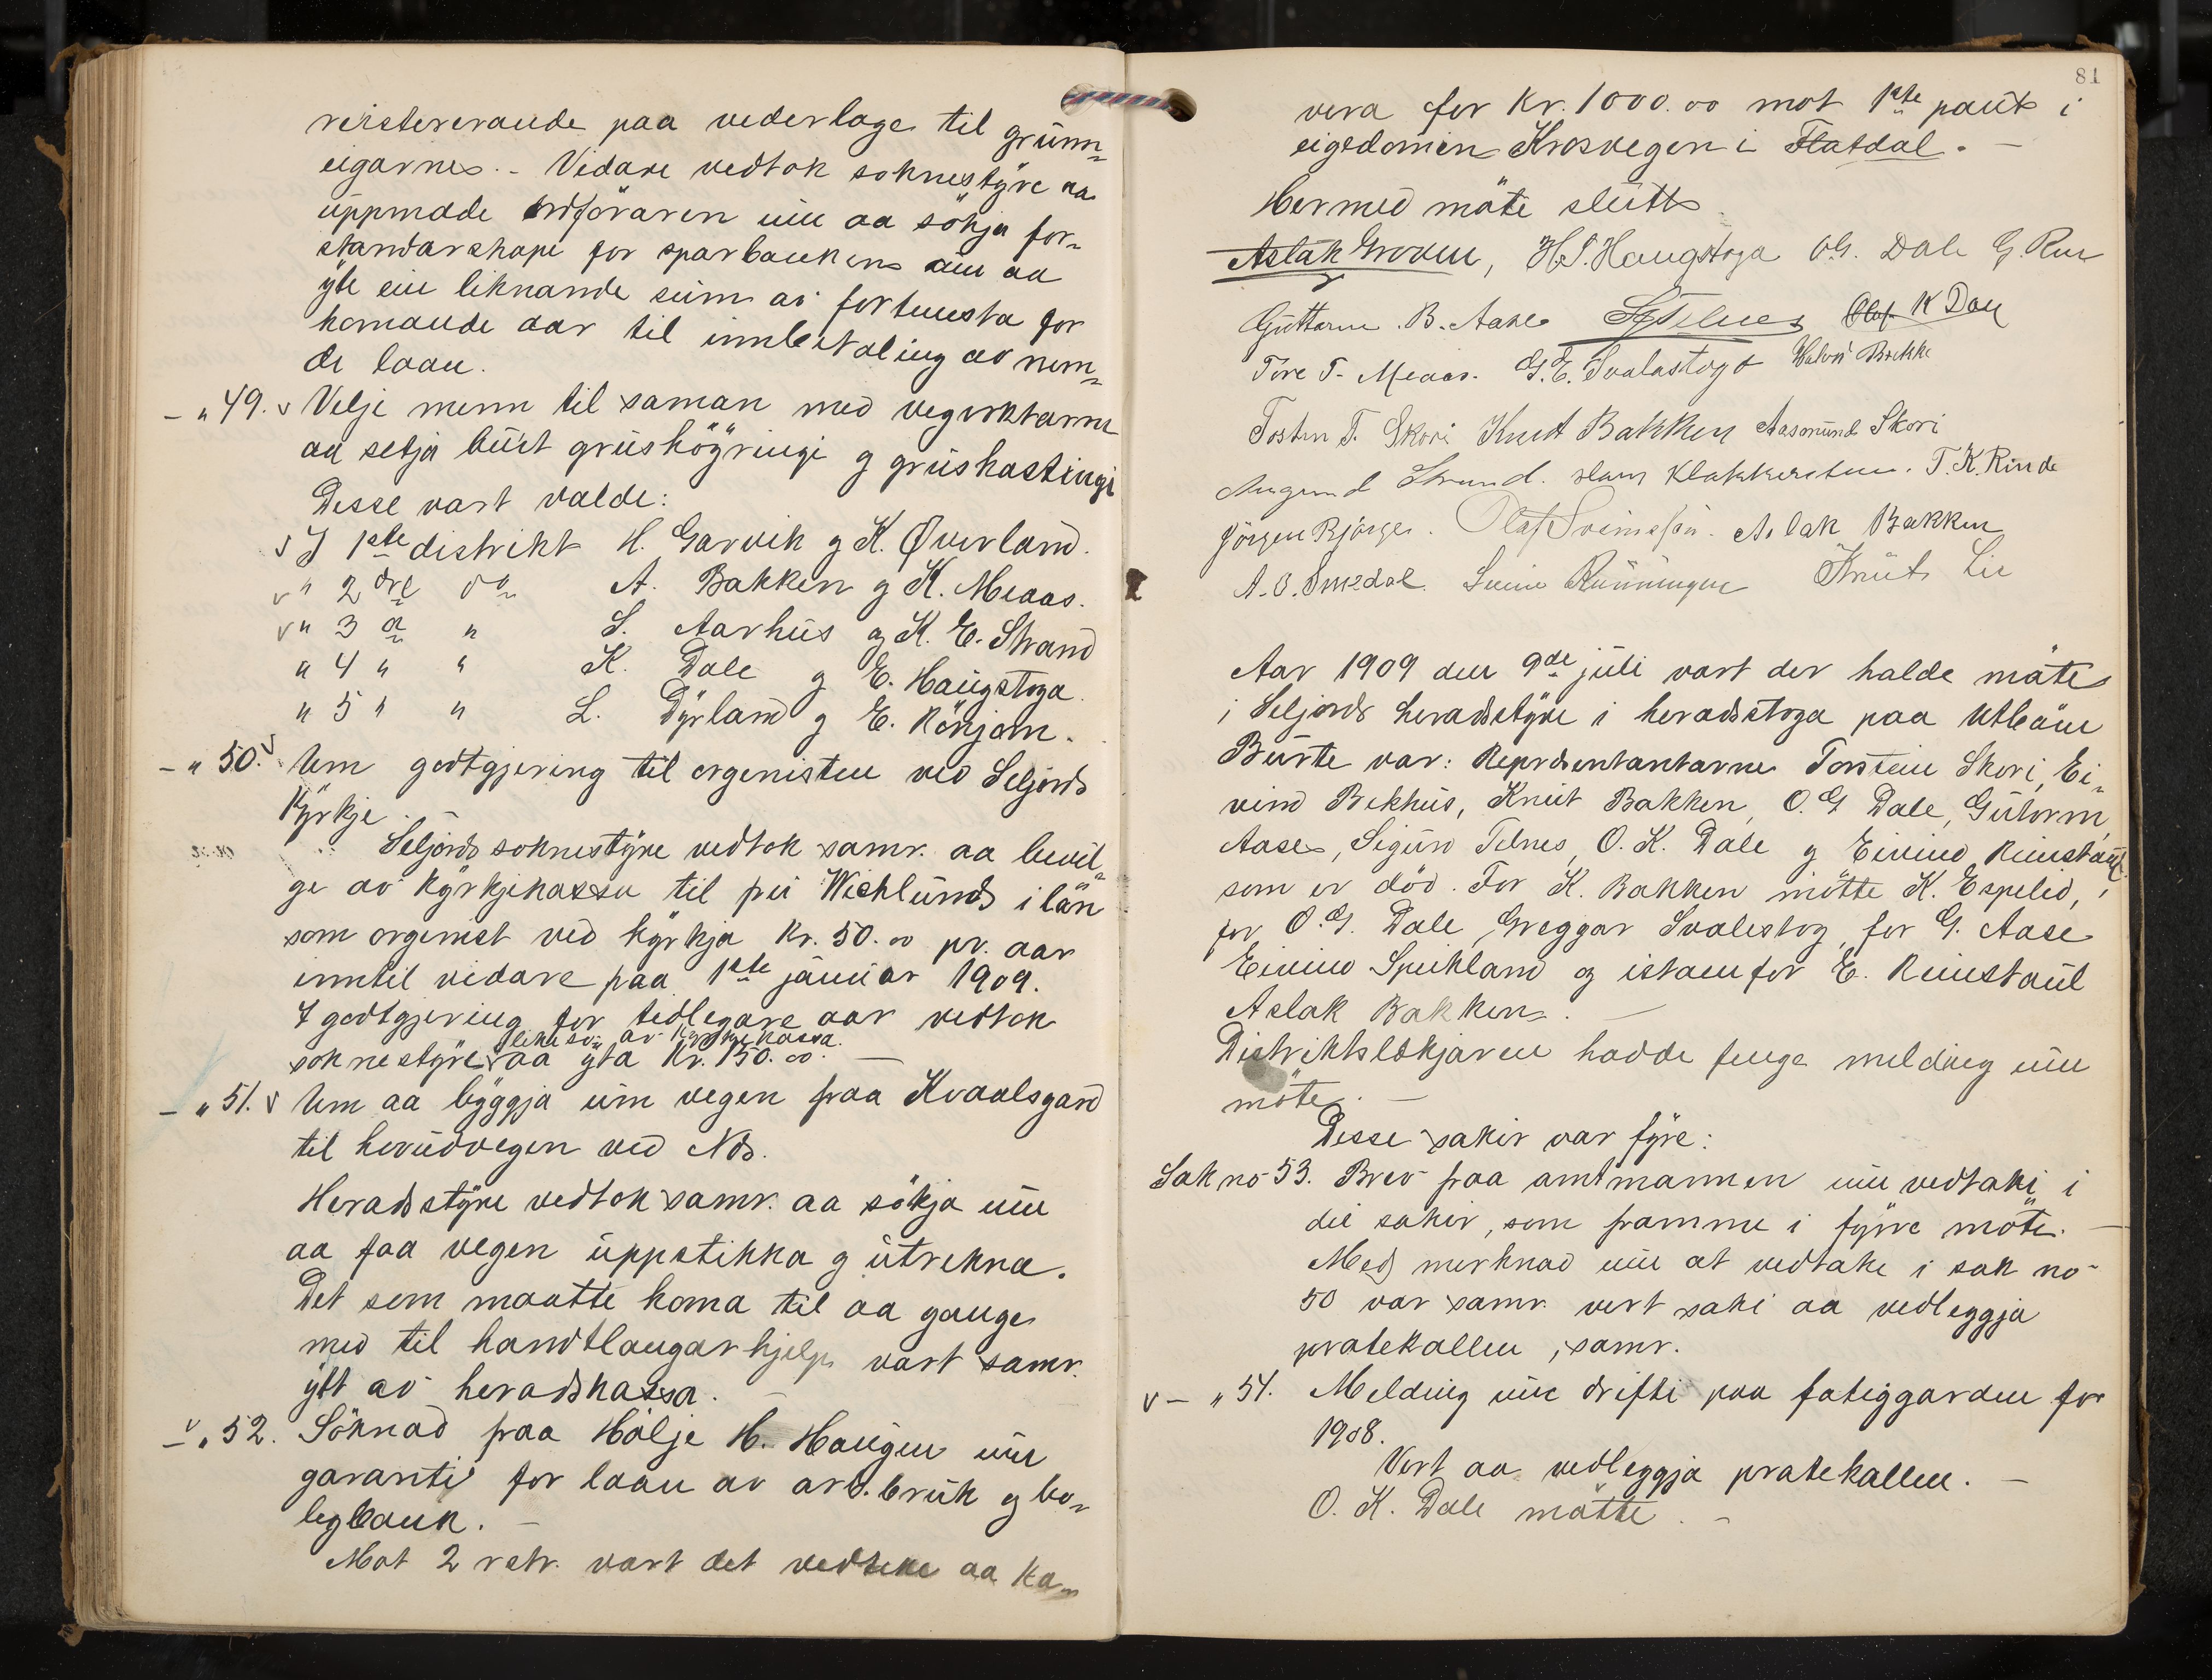 resterande paa vederlage til grunn-
eigarne. - Vidare vedtok soknestyre aa
uppmode ordföraren um aa sökja for-
standarskape for sparbanken um aa
yte ein liknande sum av fortenesta for
komande aar til innbetaling av nem-
de laan.
- " 49. v Velje menn til saman med vegvoktarne
aa setja burt grushögringi g gruskastingi
Desse vart valde:
v I 1ste distrikt H. Garvik g K. Øverland.
v " 2dre do A. Bakken g K. Meaas.
v " 3 d " S. Aarhus og K. E. Strand
" 4 " " K. Dale g E. Haugstoga.
" 5 " " L. Dyrland g E. Rönjom.
- " 50. v Um godtgjering til orgenisten ved Seljords
Kyrkje.
Seljords soknestyre vedtok samr. aa bevil-
ge av kyrkjekassa til frú Wichlunds i län
som orgenist ved kyrkja kr. 50.00 pr. aar
inntil vidare fraa 1ste januar 1909.
I godtgjering for tidlegare aar vedtok
likeso av kyrkjekassa.
soknestyre aa yta kr. 150.00. -
- " 51. v Um aa byggja um vegen fraa Kvaalsgard
til hovudvegen ved Nds.
Heradsstyre vedtok samr. aa sökja um
aa faa vegen uppstikka g utrekna.
Det som maatte koma til aa gange
med til handtlangarhjelp vart samr.
ytt av heradskassa. -
- v " 52. Söknad fraa Hälje H. Haugen um
garanti for laan av arb.bruk g bu-
legbank. -
Mot 2 rstr. vart det vedteke aa ka-
81
vera for Kr. 1000.00 mot 1ste pant i
eigedomen Krosvegen i Flatdal. -
Hermed möte slutt
Aslak Groven, H.S. Haugstoga O.G. Dale G. Rue
Guttorm B. Aase S Telnes Olaf K Dale
Tore T. Meaas. G. E. Svalastoga Halvor Brekke
Tosten T. Skori Knut Bakken Aasmund Skori
Augund Strand. Hans Klakkerstuen. T. K. Rinde
Jörgen Bjørge. Olaf Sveinsson. Aslak Bakken
A. O. Smedal. Svein Rünningen Knut Lie
Aar 1909 den 9de juli vart der halde möte
i Seljords heradsstyre i heradsstoga paa Utbøen
Burte var: Reprdsentantarne Torstein Skori, Ei-
vind Bekhus, Knut Bakken, O. G Dale, Gutorm
Aase, Sigurd Telnes, O. K. Dale g Eivind Reinstaul
som er död. For K. Bakken mötte K. Espelid,
for O. G. Dale, Greggar Svalestog, for G. Aase
Eivind Speikland og istaenfor E. Reinstaul
Aslak Bakken. -
Distriktslækjaren hadde fenge melding um
möte. -
Desse sakir var fyre:
Sak no 53. Brev fraa amtmannen um vedtaki i
dei sakir, som framme i fyrre möte. -
Med merknad um at vedtake i sak no
50 var samr. vert saki aa vedleggja
protekallen, samr.
v - " 54. Melding um drifti paa fatiggarden for
1908.
Vert aa vedleggja protekallen. -
O. K. Dale mötte. -